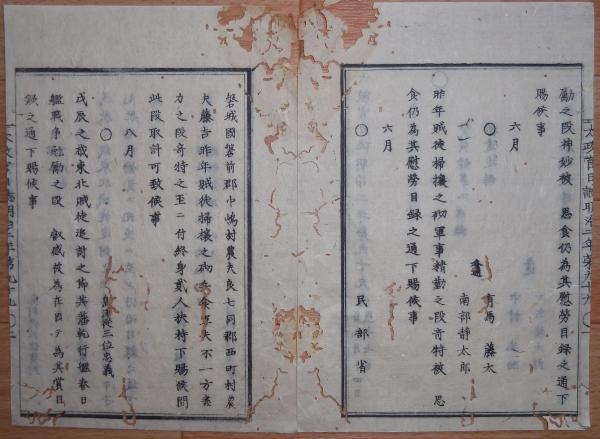 勵之段神妙被　思食仍為其慰勞目録之通下
賜候事
六月
有馬　藤太
南部靜太郎
昨年賊徒掃攘之砌軍事精勤之段奇特被　思
食仍為其慰勞目録之通下賜候事
六月
○　民部省
磐城國磐前郡中嶋村農夫良七同郡西町村農
夫藤吉昨年賊徒掃攘之砌
力之段奇特之至ニ付終身貳人扶持下賜候間
此段取計可致候事
八月
○　位忠義
戊辰之歳東北賊徒追討之節其藩乾行艦春日
艦戰爭勉勵之段　叡感被為在因テ為其賞目
録之通下賜候事